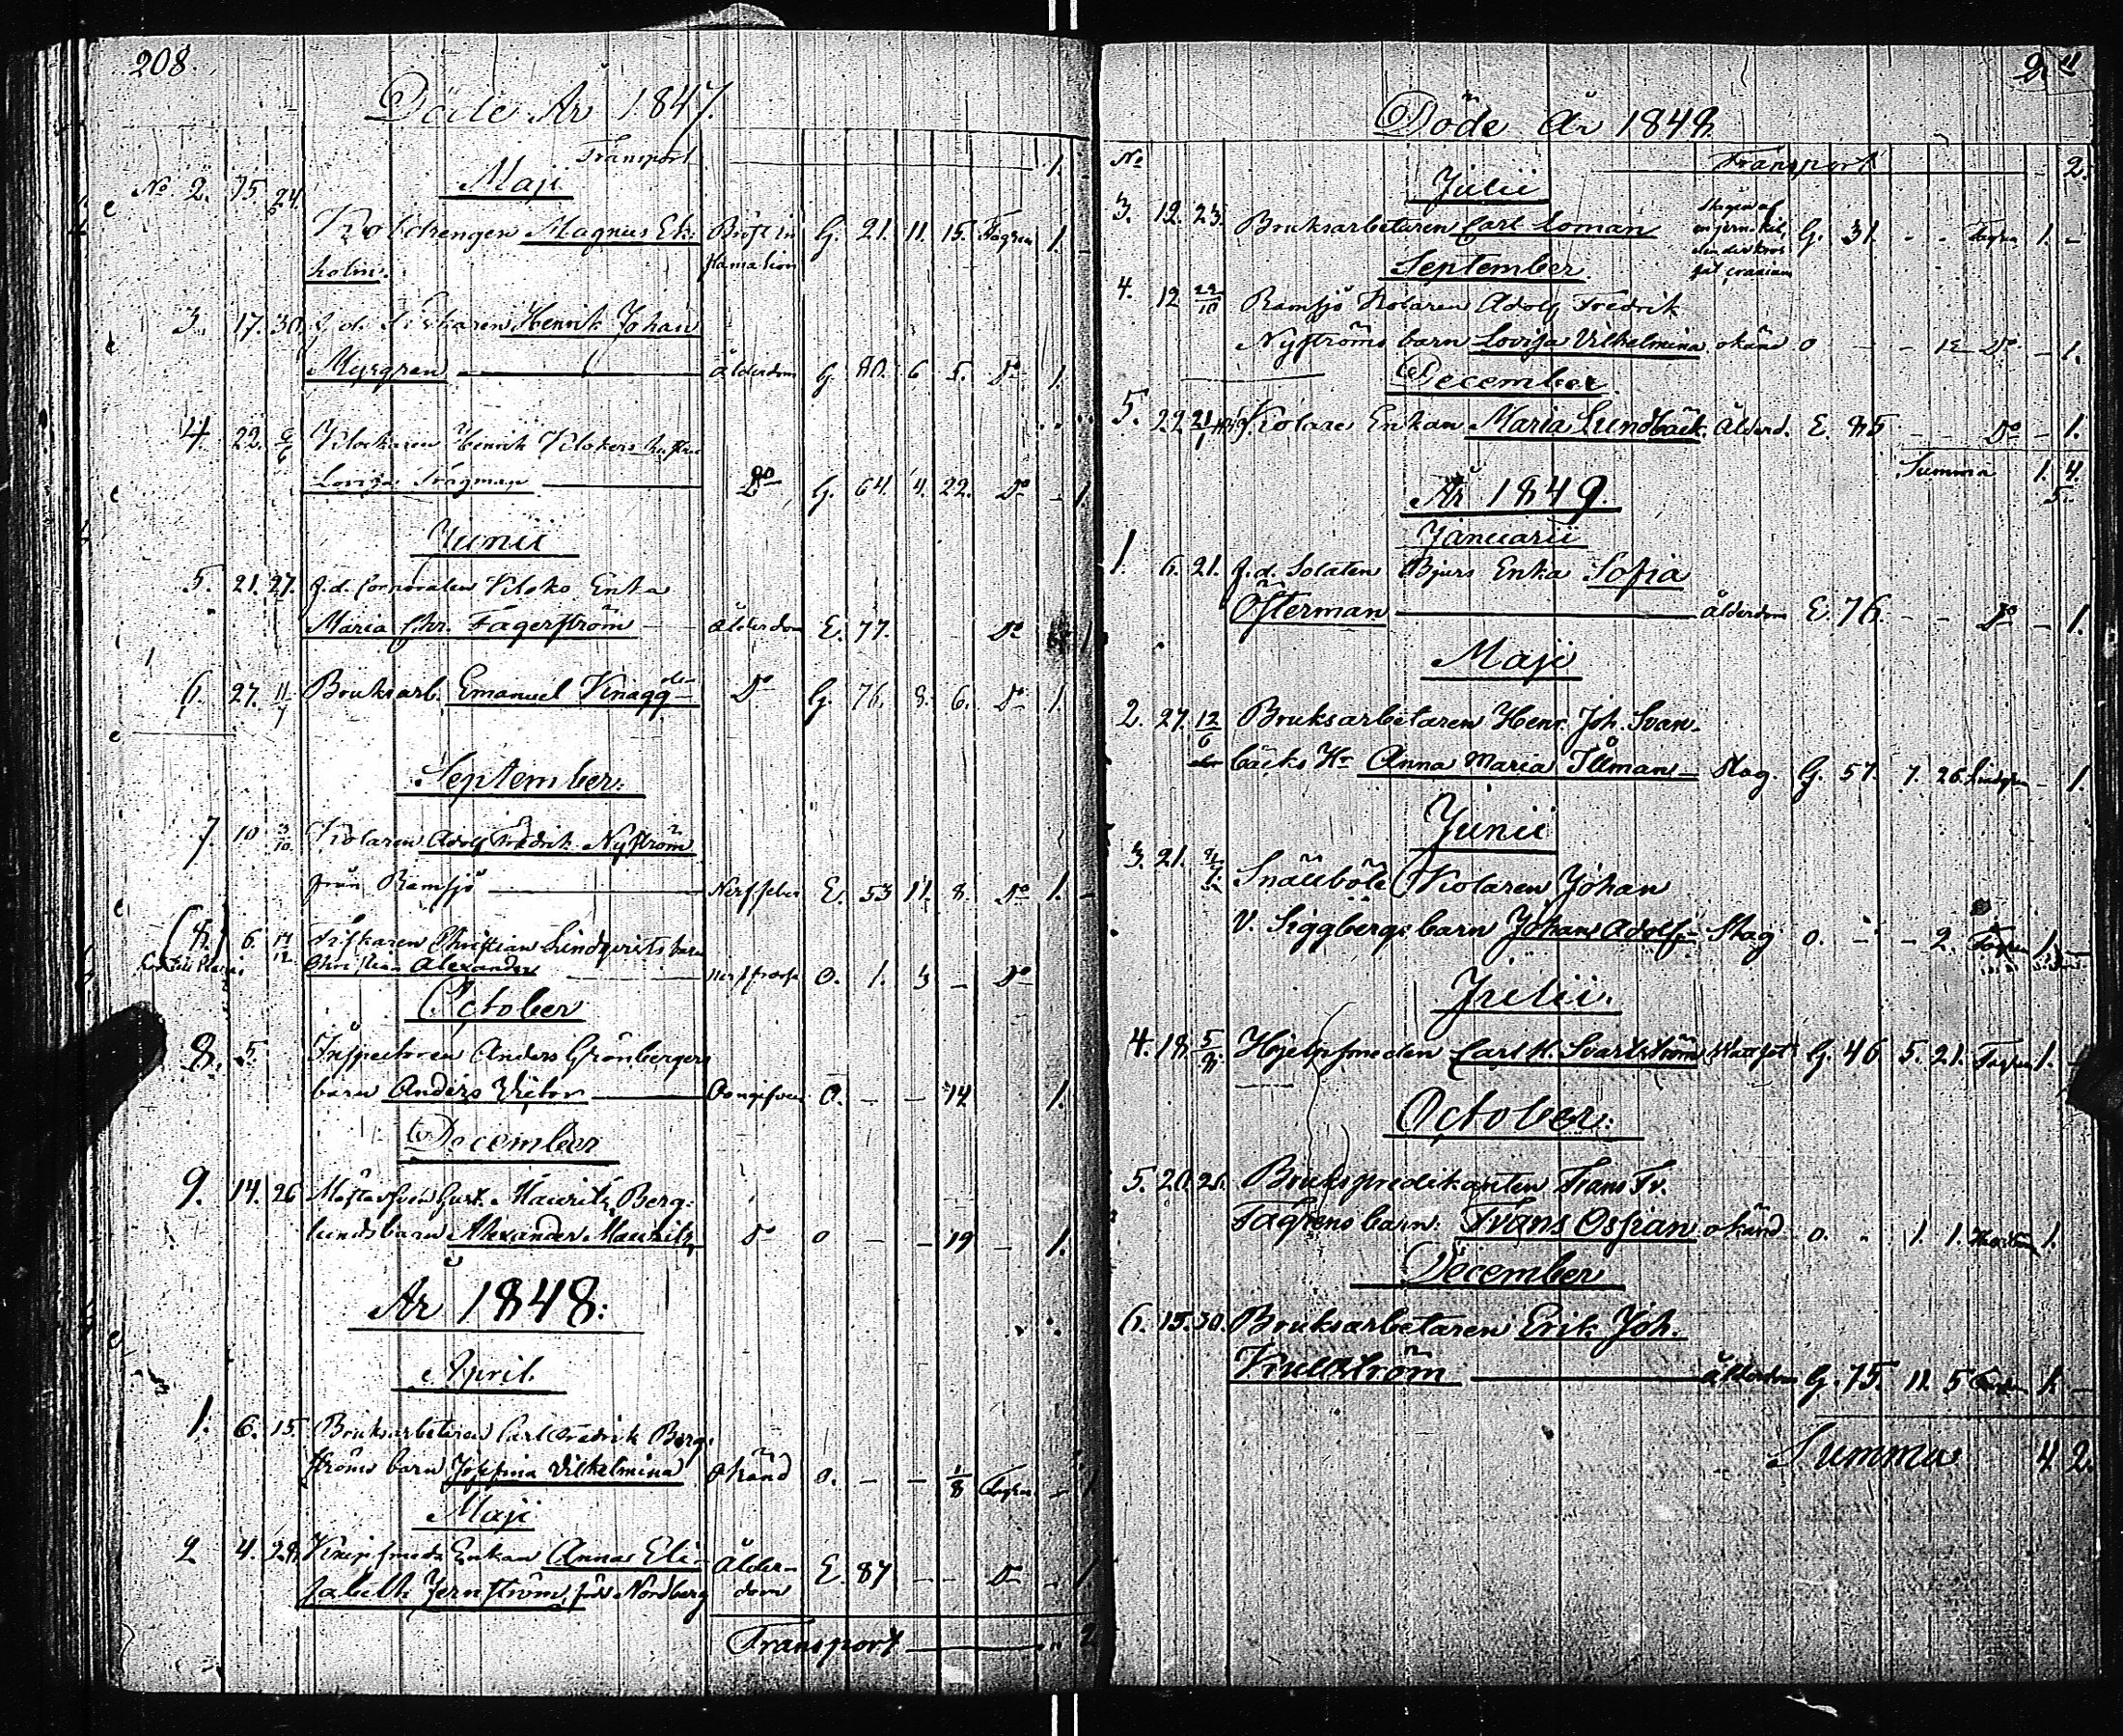 208.
Döde År 1847.
Transport 1.
Maji
No 2. 15. 24 Koldrengen Magnus Ek- Bröst in G. 21. 11. 15. Fagren 1. -
holm. flamation
3. 17. 30. f. d. Henrik Johan
Myrgren ålderdom G. 80. 6 5. Do 1.
4. 22. 6/6 Klockaren Henrik Klokers hustru
Lovisa Do G. 64. 4. 22. Do - 1.
Junii
5. 21. 27. f.d. Corporalen Enka
Maria Chr. Fagerström ålderdom E. 77. Do 1.
6. 27. 11/7 Bruksarb. Emanuel Knagg Do G. 76. 8. 6. Do 1.
September.
7. 10 3/10. Kolaren Adolf Fredrik Nyström
från Ramsjö E. 53 11. 8. Do 1. -
(8.) 6. Christian Lindqvists barn
Christian Alexander O. 1. 3 - Do
October
8. 5. Inspectoren Anders Grönbergers
barn Anders Victor Oangifven O. - - 14 1.
December
9. 14. 26 Gust. Mauritz Berg-
lunds barn Alexander Mauritz Do o - - 19 - 1.
År 1848.
April.
1. 6. 15. Bruksarbetaren Carl Fredrik Berg-
ströms barn Josefina Vilhelmina Okänd o. - - 1/8 Fagren - 1
Maji
2 4. 28. Knipsmeds Enkan Anna Eli- Ålder- E. 87 - - Do - 1.
sabeth Jernström, född Nordberg dom
Transport 2
Döde År 1848.
No Transport - 2.
Julii
3. 12. 23. Bruksarbetaren Carl Loman Slagen af G. 31. - - Fagren 1. -
September
4. 12 22/10 Ramsjö Kolaren Adolf Fredrik
Nyströms barn Lovisa Vilhelmina okänd o - - 12 Do - 1.
December
5. 22 21/1 1849. Kolare Enkan Maria Lundbäck Ålderd. E. 85 - - Do - 1.
Summa 1. 4.
5.
År 1849.
Januarii
1. 6. 21. f.d. Solaten Bjurs Enka Sofia
Österman ålderdom E. 76. - - Do - 1.
Maji
2. 27. 12/6 Bruksarbetaren Henr. Joh. Svan-
bäcks Hr Anna Maria Tilman Slag G. 57. 7. 26. - 1.
Junii
3. 21. Snäuböle Kolaren Johan
V. Siggbergs barn Johan Adolf Slag o. - - 2. Fagren 1. -
Julii.
4. 18. 5/8. Hjelpsmeden Carl H. Svartström G. 46 5. 21. Fagren 1. -
October.
5. 20. 26. Brukspredikanten Frans Fr.
Fagrens barn. Frans Ossian okänd o. - 1. 1. 1.
December
6. 15. 30. Bruksarbetaren Erik Joh.
Krullström ålderdom G. 75. 11. 5 1. -
Summa 4 2.